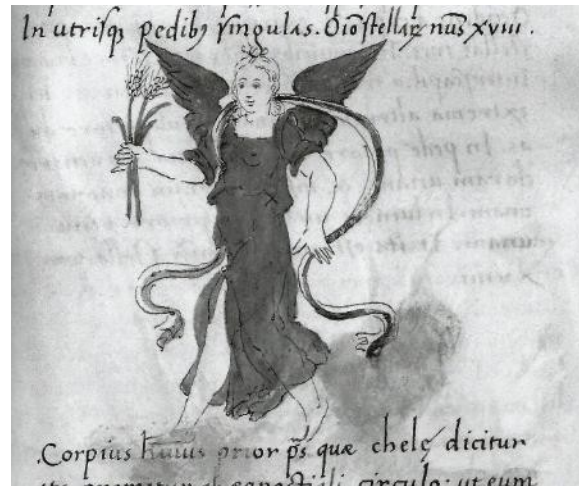 In utrisq pedibꝫ singulas. Oıo stellaꝝ nūs xviii.
.Corpius huius prior p̄s quæ chelę dicitur
circulo: ut eum